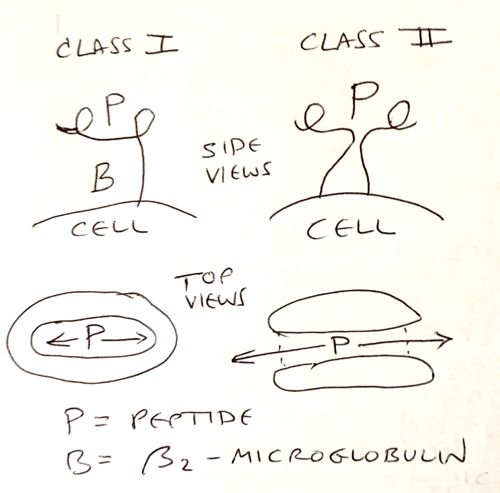 CLASS I
CLASS II
P
P
SIDE
VIEWS
B
CELL
CELL
TOP
VIEWS
P
P
P = PEPTIDE
B = β2 - MICROGLOBULIN